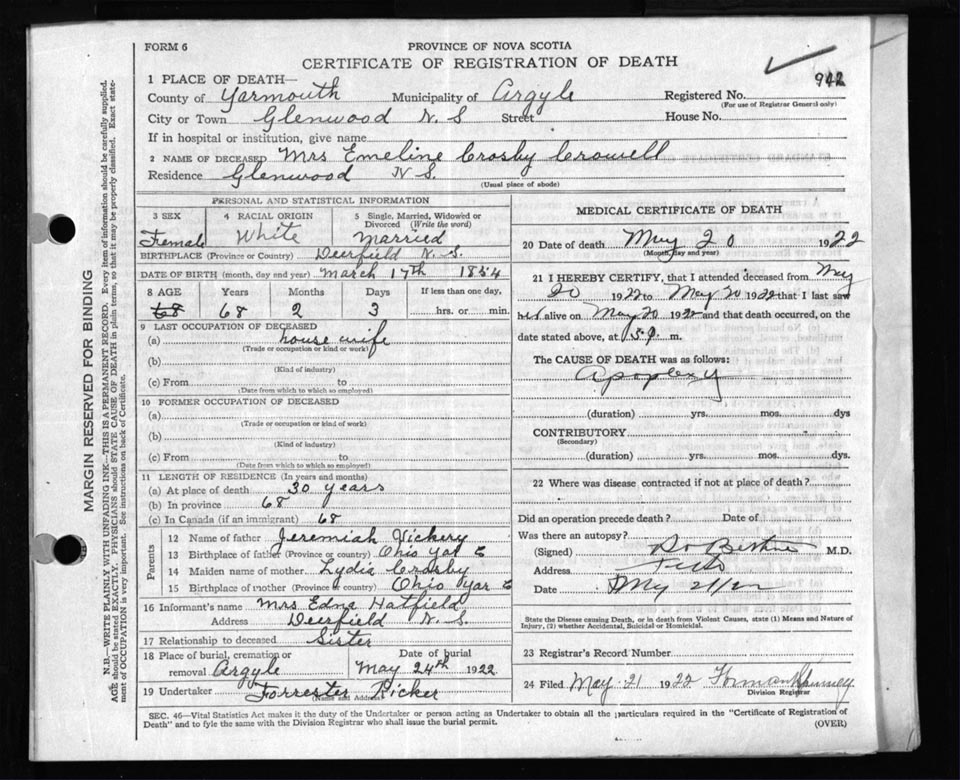 FORM 6
PROVINCE OF NOVA SCOTIA
CERTIFICATE OF REGISTRATION OF DEATH
942
1 PLACE OF DEATH—
County of Yarmouth Municipality of Argyle Registered No.
(For use of Registrar General only)
City or Town Glenwood N. S Street House No.
If in hospital or institution, give name
2 NAME OF DECEASED Mrs Emeline Crosby Crowell
Residence Glenwood N S.
(Usual place of abode)
MARGIN RESERVED FOR BINDING
N.B.—WRITE PLAINLY WITH UNFADING INK—THIS IS A PERMANENT RECORD. Every item of information should be carefully supplied.
AGE should be stated EXACTLY. PHYSICIANS should STATE CAUSE OF DEATH in plain terms, so that it may be properly classified. Exact state-
ment of OCCUPATION is very important. See instructions on back of Certificate.
PERSONAL AND STATISTICAL INFORMATION
3 SEX 4 RACIAL ORIGIN 5 Single, Married, Widowed or
Divorced (Write the word)
Female White Married
BIRTHPLACE (Province or Country) Deerfield N. S.
DATE OF BIRTH (month, day and year) March 17th 1854
8 AGE Years Months Days If less than one day,
68 68 2 3 hrs. or min.
9 LAST OCCUPATION OF DECEASED
(a) house wife
(Trade or occupation or kind or work)
(b)
(Kind of industry)
(c) From to
(Date from which to which so employed)
10 FORMER OCCUPATION OF DECEASED
(a)
(Trade or occupation or kind of work)
(b)
(Kind of industry)
(c) From to
(Date from which to which so employed)
11 LENGTH OF RESIDENCE (In years and months)
(a) At place of death 30 years
(b) In province 68
(c) In Canada (if an immigrant) 68
Parents
12 Name of father Jeremiah Vickery
13 Birthplace of father (Province or country) Ohio Yar
14 Maiden name of mother Lydia Crosby
15 Birthplace of mother (Province or country) Ohio Yar
16 Informant's name Mrs Edna Hatfield
Address Deerfield N. S.
17 Relationship to deceased Sister
18 Place of burial, cremation or Date of burial
removal Argyle May 24th 1922
19 Undertaker Forrester Ricker
(Name and Address)
MEDICAL CERTIFICATE OF DEATH
20 Date of death May 20 1922
(Month, day and year)
21 I HEREBY CERTIFY, that I attended deceased from May
20 1922 to May 20 1922 that I last saw
her alive on May 20 1922 and that death occurred, on the
date stated above, at m.
The CAUSE OF DEATH was as follows:
Apoplexy
(duration) yrs. mos. dys
CONTRIBUTORY
(Secondary)
(duration) yrs. mos. dys.
22 Where was disease contracted if not at place of death?
Did an operation precede death? Date of
Was there an autopsy?
(Signed) M.D.
Address
Date May 21/22
State the Disease causing Death, or in death from Violent Causes, state (1) Means and Nature of
Injury, (2) whether Accidental, Suicidal or Homicidal.
23 Registrar's Record Number
24 Filed May 21 1922
Division Registrar
SEC. 46—Vital Statistics Act makes it the duty of the Undertaker or person acting as Undertaker to obtain all the particulars required in the "Certificate of Registration of
Death" and to fyle the same with the Division Registrar who shall issue the burial permit. (OVER)